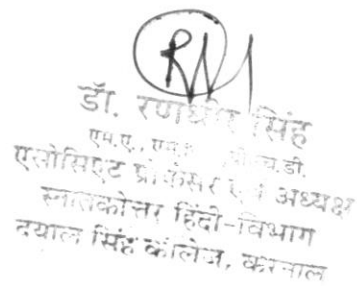 डॉ. रणधीर सिंह
एम.ए., एम.फिल., पीएच.डी.
एसोसिएट प्रोफेसर एवं अध्यक्ष
स्नातकोत्तर हिंदी-विभाग
दयाल सिंह कॉलेज, करनाल